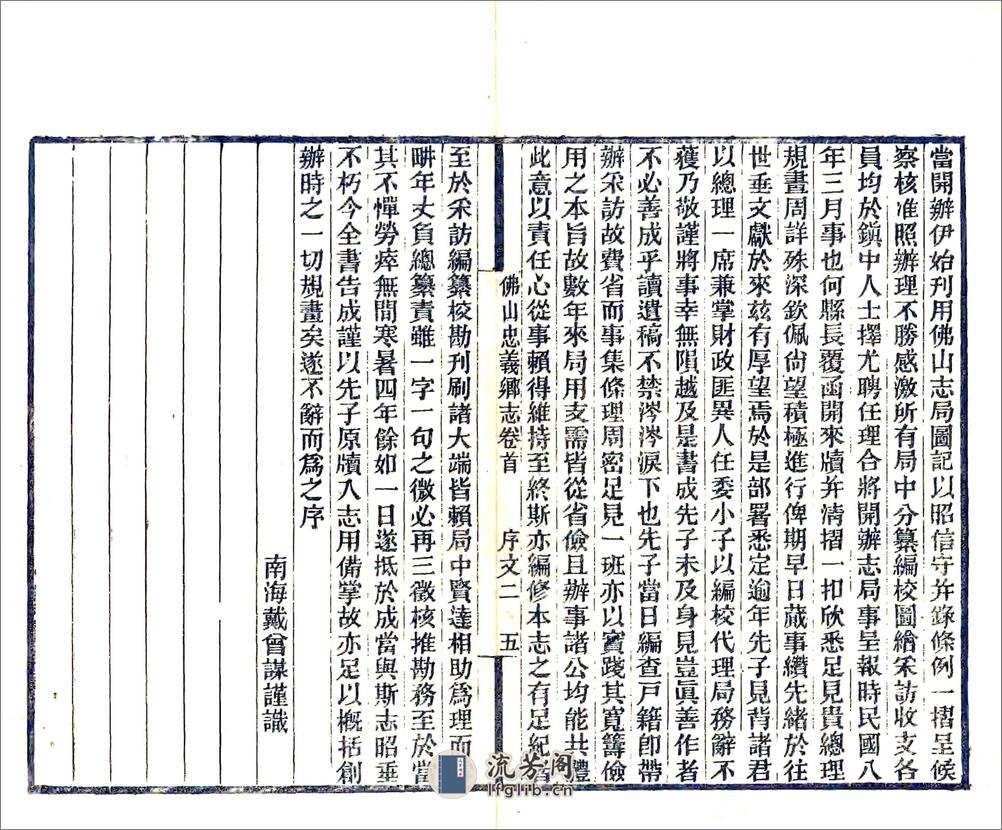 當開辦伊始刊用佛山志局圖記以昭信守并錄條例一摺呈候
察核准照辦理不勝感激所有局中分纂編校圖繪采訪收支各
員均於鎮中人士擇尤聘任理合將開辦志局事呈報時民國八
年三月事也何縣長覆函開來牘并清摺一扣欣悉足見貴總理
規畫周詳殊深欽佩尙望積極進行俾期早日蕆事纘先緒於往
世垂文獻於來茲有厚望焉於是部署悉定逾年先子見背諸君
以總理一席兼掌財政匪異人任委小子以編校代理局務辭不
獲乃敬謹將事幸無隕越及是書成先子未及身見豈眞善作者
不必善成乎讀遺稿不禁涔涔淚下也先子當日編查戸籍卽帶
辦采訪故費省而事集條理周密足見一斑亦以實踐其寬籌儉
用之本旨故數年來局用支需皆從省儉且辦事諸公均能共體
此意以責任心從事賴得維持至終斯亦編修本志之有足紀者
佛山忠義鄉志卷首 序文二 五
至於采訪編纂校勘刊刷諸大端皆賴局中賢達相助爲理而
畊年丈負總纂責雖一字一句之微必再三徵核推勘務至於當
其不憚勞瘁無間寒暑四年餘如一日遂抵於成當與斯志昭垂
不朽今全書告成謹以先子原牘入志用備掌故亦足以槪括創
辦時之一切規畫矣遂不辭而爲之序
南海戴曾謀謹識
流芳阁
lfglib.cn